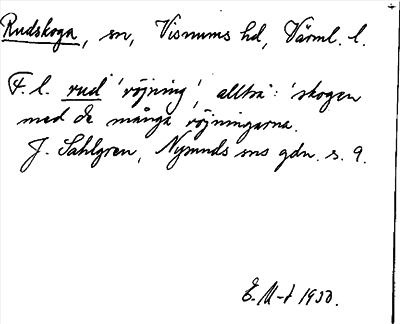 Rudskoga, sn, Visnums hd, Värml. l.
F. l. rud 'röjning', alltså: 'skogen
med de många röjningarna.
J. Sahlgren, Nysunds sns gdn. s. 9.
E. U-t 1930.